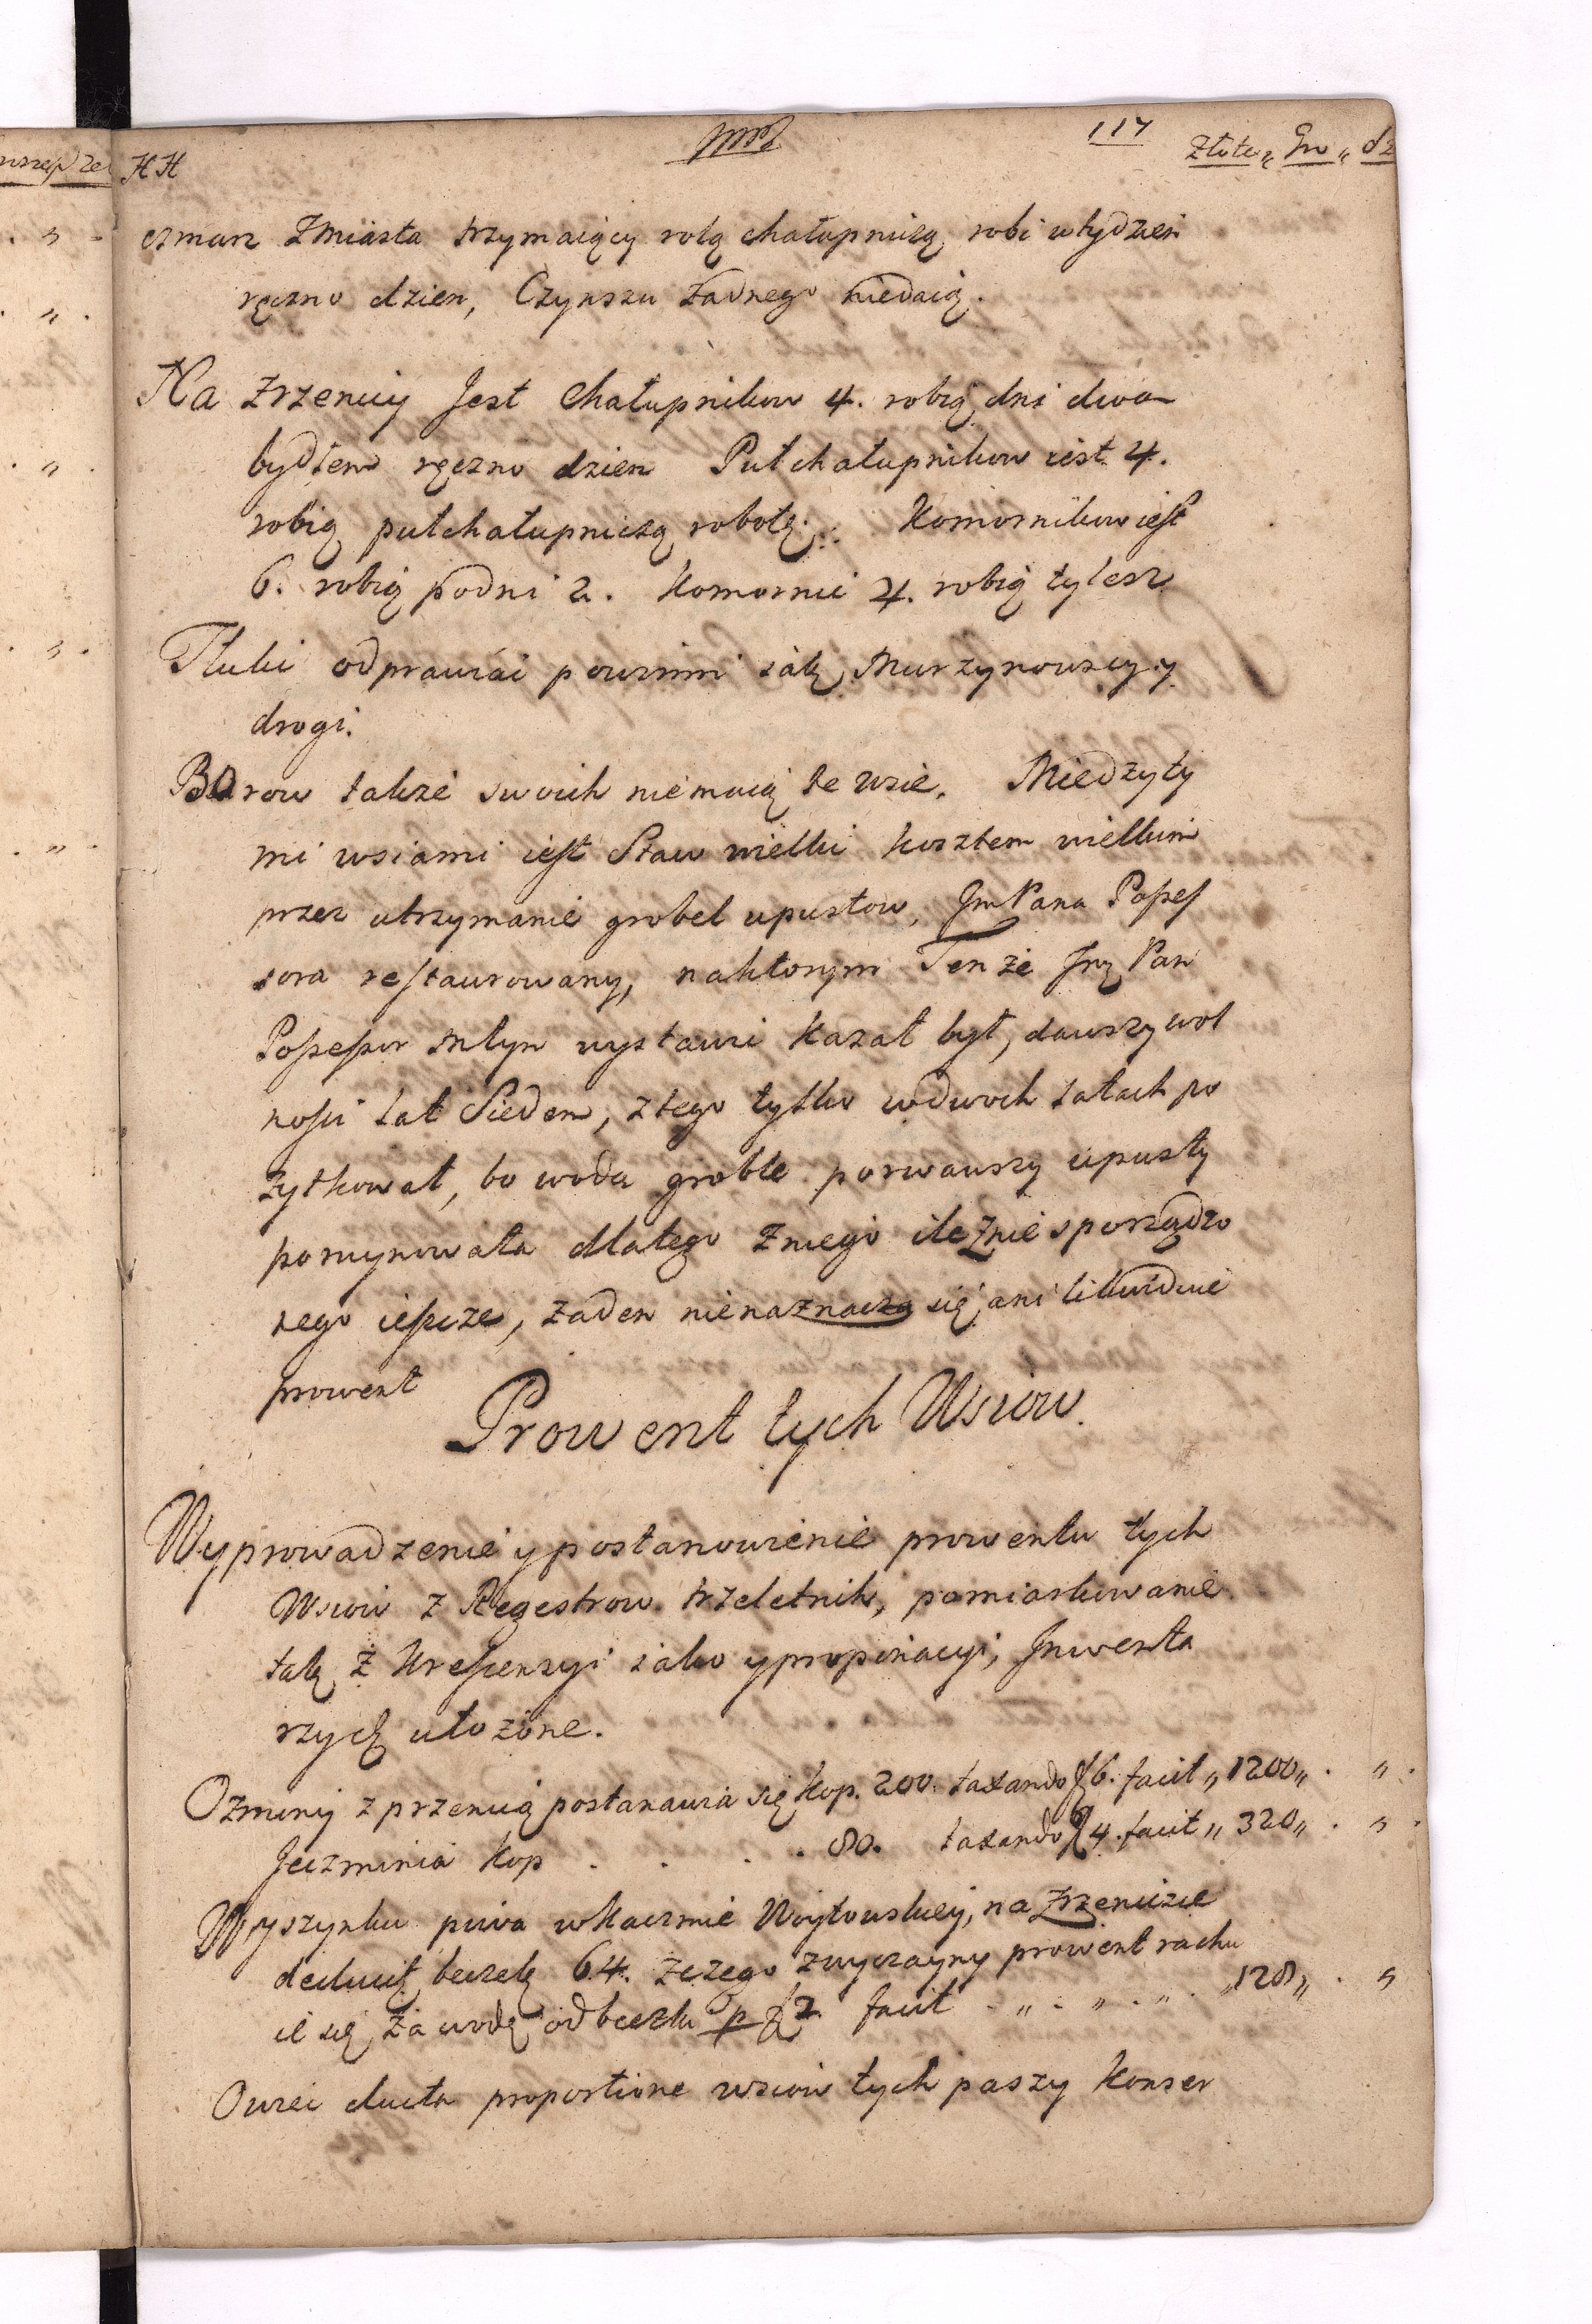 117
HH
Złote „ Gro „ d
czmarz Zmiasta trzymaiący rolą chałupniczą robi wtydzien
ręczno dzien, Czynszu żadnego niedaią.
Na Zrzenicy Jest Chałupnikow 4. robią dni dwa
bydłem ręczno dzien Pułchałupnikow iest 4.
robią pułchałupniczą robotę. Komornikow iest
6. robią podni 2. Komornic 4. robią tylesz
Tłuki odprawiai powinni iak Murzynowscy y
drogi.
Borow także swoich niemaią te wsie. Miedzyty
mi wsiami iest Staw wielki kosztem wielkim
przez utrzymanie grobel upustow, Jm Pana Posses
sora restaurowany, naktorym Tenże Jmę Pan
Possessor Młyn wystawi kazał był, dawszy wol
nosci lat Siedem, z tego tylko wdwoch latach po
zytkował, bo woda groble porwawszy upusty
porujnowała dlatego Zniego ile Znie sporządzo
nego ieszcze, żaden nienaznacza się ani likwiduie
prowent
Prowent tych Wsiow.
Wyprowadzenie y postanowienie prowentu tych
Wsiow z Regestrow trzeletnih, pomiarkowanie
tak z Krescensyi iako y propinacyi, Jnwenta
rzych ułożone.
Ozminy z przenicą postanawia się kop. 200. taxando f 6. facit „ 1200 „ . „ .
Jeczminia kop . . . . 80. taxando f 4. facit „ 320 „ . „ .
Wyszynku piwa wKarczmie Woytowskiey, na Zrzenicze
declucit beczek 64. Zczego zwyczayny prowent rachu
ie się Za wodę od beczki p f 2 facit . „ . „ . „ . „ 128 „ . „
Owiec ducta proportione wsiow tych paszy konser